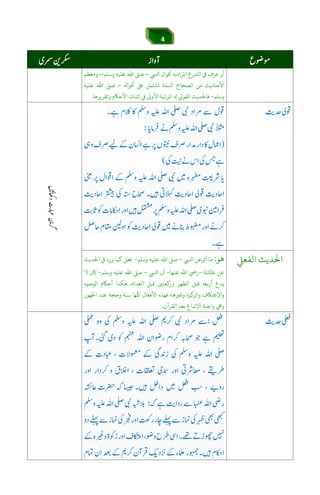 4
موضوع
آواز
سکرین سمری
أو عرف في الشرع المراد به أقوال النبي – صلى الله عليه وسلم-، ومعظم
الأحاديث من الصحاح الستة تشتمل على أقواله – صلى الله عليه
وسلم- فالحديث القولي له المرتبة الأولى في إثبات الأحكام وتقريرها.
قولی حدیث
قول سے مراد نبی صلی اللہ علیہ وسلم کا کلام ہے۔
مثلاً نبی صلی اللہ علیہ وسلم نے فرمایا:
(اعمال کا دارومدار صرف نیتوں پر ہے انسان کے لیے صرف وہی
ہے جس کی اس نے نیت کی)
یا شریعت مطہرہ میں نبی صلی اللہ علیہ وسلم کے اقوال پر مبنی
احادیث قولی احادیث کہلاتی ہیں۔ صحاح ستہ کی بیشتر احادیث
فرامین نبوی صلی اللہ علیہ وسلم پر مشتمل ہیں اور احکامات کو ثابت
کرنے اور مضبوط بنانے میں قولی احادیث کو اولین مقام حاصل
ہے۔
الحديث الفعلي
هو: ما أثر عن النبي – صلى الله عليه وسلم- فعل كما ورد في الحديث
عن عائشة –رضي الله عنها- أن النبي – صلى الله عليه وسلم- كان لا
يدع أربعا قبل الظهر وركعتين قبل الغداة. هكذا أحكام الوضوء
والاعتكاف والزكوة وغيرها؛ فهذه الأفعال كلها سنة وحجة عند الجمهور
وهي واجبة الإتباع بعد القرآن.
فعلی حدیث
فعل سے مراد نبی کریم صلی اللہ علیہ وسلم کی وہ عملی
تعلیم ہے جو صحابہ کرام رضوان اللہ علیہم کو دی گئی۔ آپ
صلی اللہ علیہ وسلم کی زندگی کے معمولات ، عبادت کے
طریقے ، معاشرتی اور سماجی تعلقات ، اخلاق و کردار اور
رویے ، سب فعل میں داخل ہیں۔ جیسا کہ حضرت عائشہ
رضی اللہ عنہا سے روایت ہے کہ: بلاشبہ نبی صلی اللہ علیہ وسلم
کبھی بھی ظہر کی نماز سے پہلے چار رکعت اور فجر کی نماز سے پہلے دو
نہیں چھوڑتے تھے۔ اسی طرح وضو، اعتکاف اور زکوۃ وغیرہ کے
احکام ہیں۔ جمہور علماء کے نزدیک قرآن کریم کے بعد ان تمام